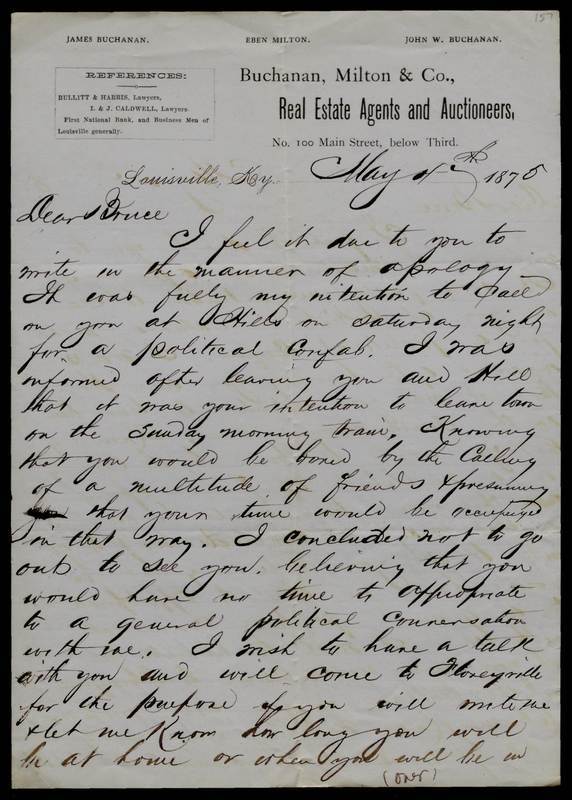 157
JAMES BUCHANAN. EBEN MILTON. JOHN W. BUCHANAN.
REFERENCES:
BULLITT & HARRIS, Lawyers,
I. & J. CALDWELL, Lawyers.
First National Bank, and Business Men of
Louisville generally.
Buchanan, Milton & Co.,
Real Estate Agents and Auctioneers,
No. 100 Main Street, below Third.
Louisville, Ky. May 4th 1875
Dear Bruce
I feel it due to you to
write in the manner of apology
It was fully my intention to Call
on you at Hills on saturday night
for a political Confab. I was
informed after leaving you and Hill
that it was your intention to leave town
on the Sunday morning train. Knowing
that you would be bored by the Calling
of a multitude of friends & presuming
that your time would be occupyed
in that way. I concluded not to go
out to see you. believing that you
would have no time to appropriate
to a general political Conversation
with me. I wish to have a talk
with you and will come to
for the purpose if you will write me
& let me Know how long you will
be at home or when you will be in
(over)